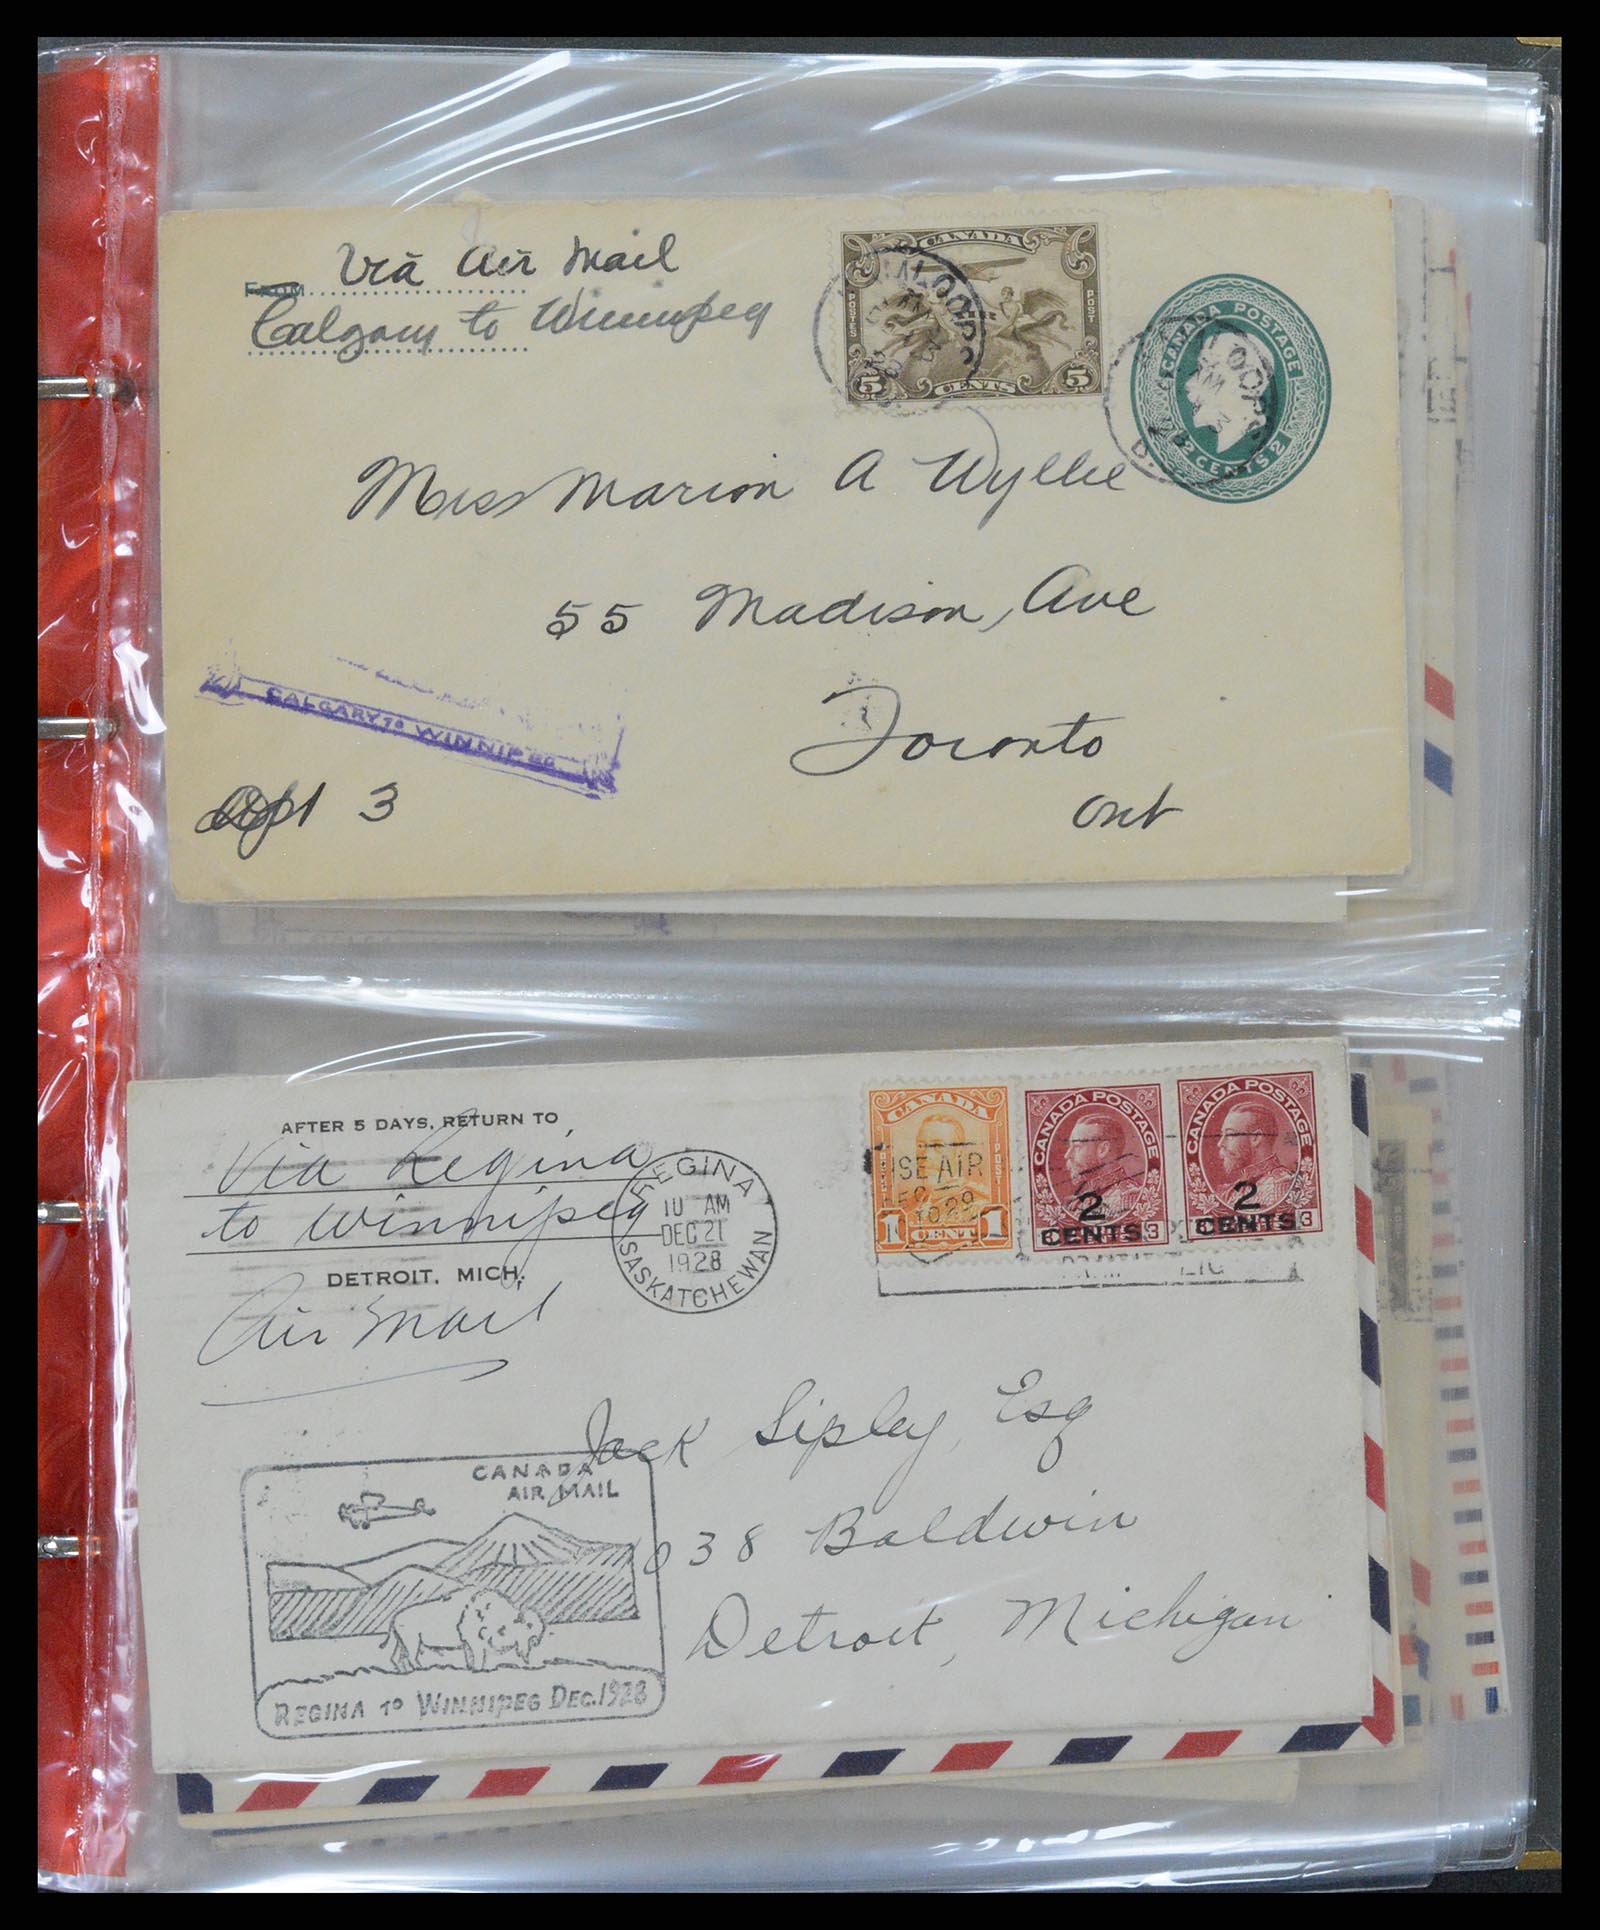 FROM Via Air Mail
Calgary to Winnipeg
CANADA
POSTES POST
5 CENTS 5
CANADA POSTAGE
2 CENTS 2
Miss Marion A Wyllie
55 Madison, Ave
CALGARY TO WINNIPEG
Toronto
Apt 3
Ont
AFTER 5 DAYS, RETURN TO
Via Regina
to Winnipeg
DETROIT, MICH.
Air Mail
REGINA
10 AM
DEC 21
1928
SASKATCHEWAN
CANADA
1 CENT 1
CANADA POSTAGE
2
CENTS 3
CANADA POSTAGE
2
CENTS 3
Jack Sipley, Esq
038 Baldwin
Detroit, Michigan
CANADA
AIR MAIL
REGINA TO WINNIPEG DEC. 1928